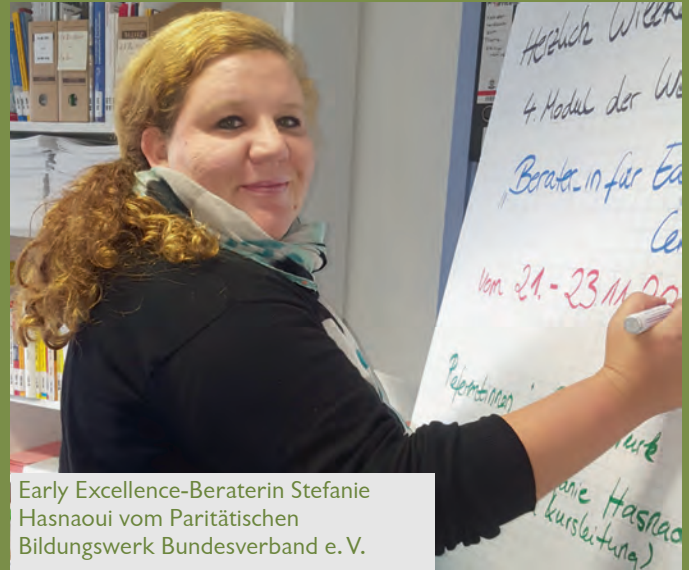 Herzlich Willk
4. Modul der We
„Berater_in für Ea
Cen
vom 21.-23.11.20
Referentinnen:
werk
anie Hasnao
kursleitung)
Early Excellence-Beraterin Stefanie
Hasnaoui vom Paritätischen
Bildungswerk Bundesverband e. V.